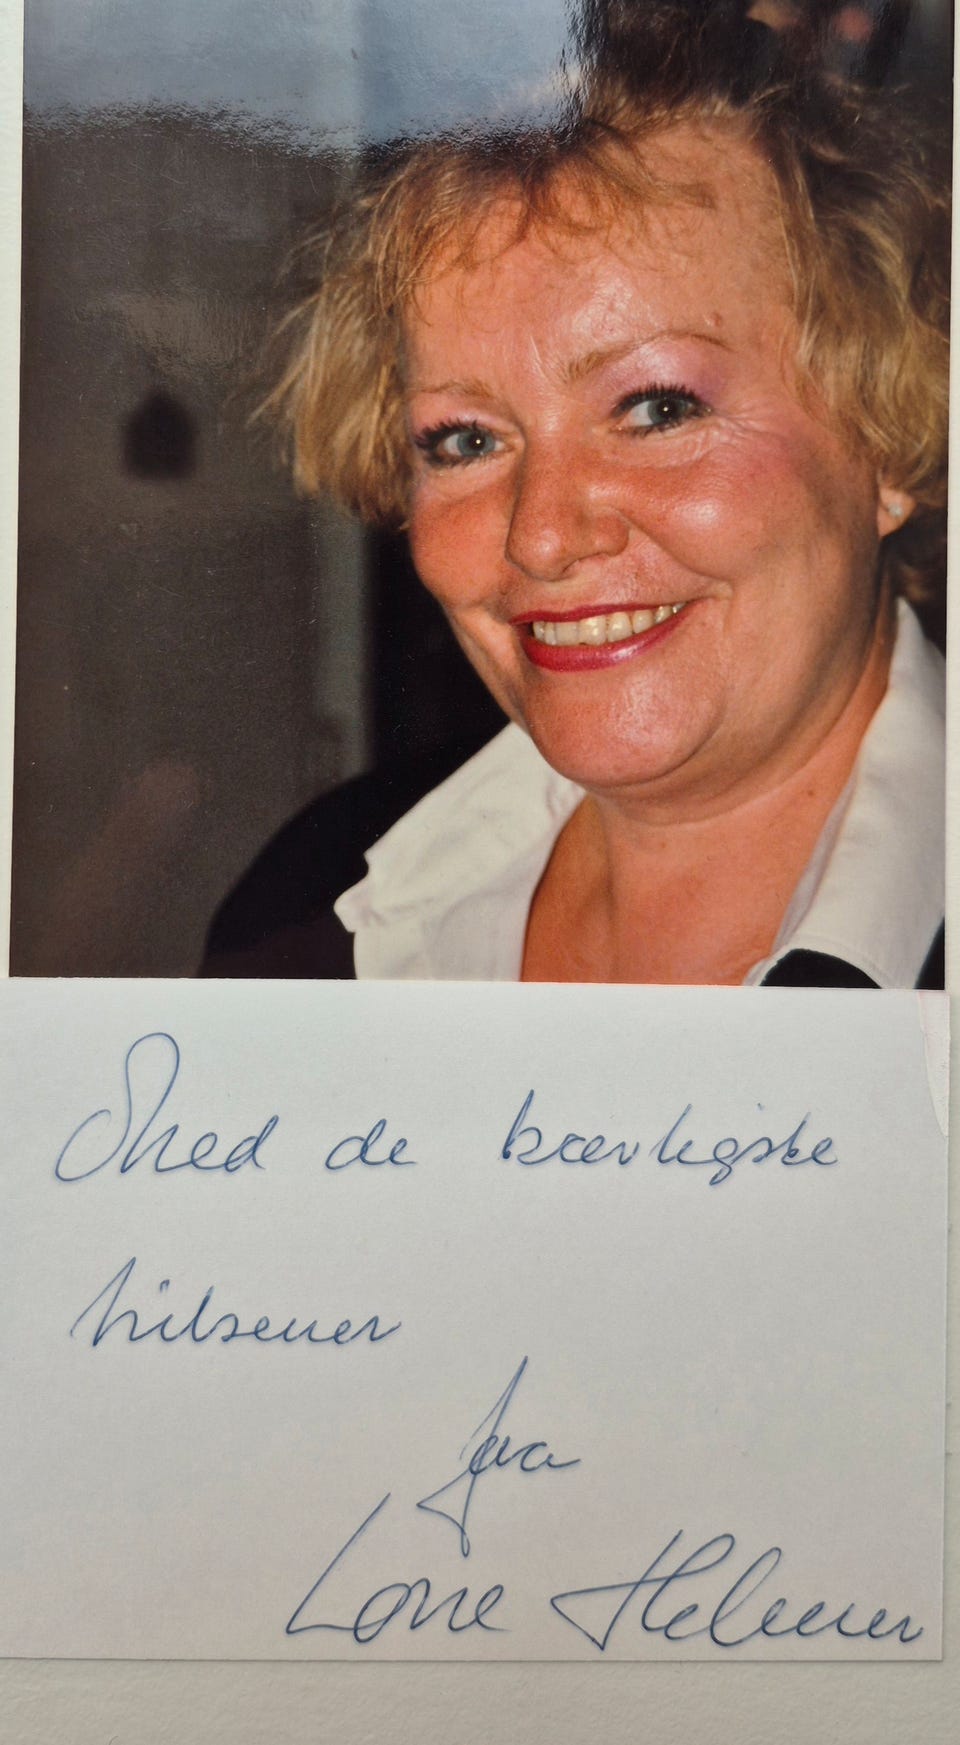 Med de kærligste
hilsener
fra
Lone Helmer